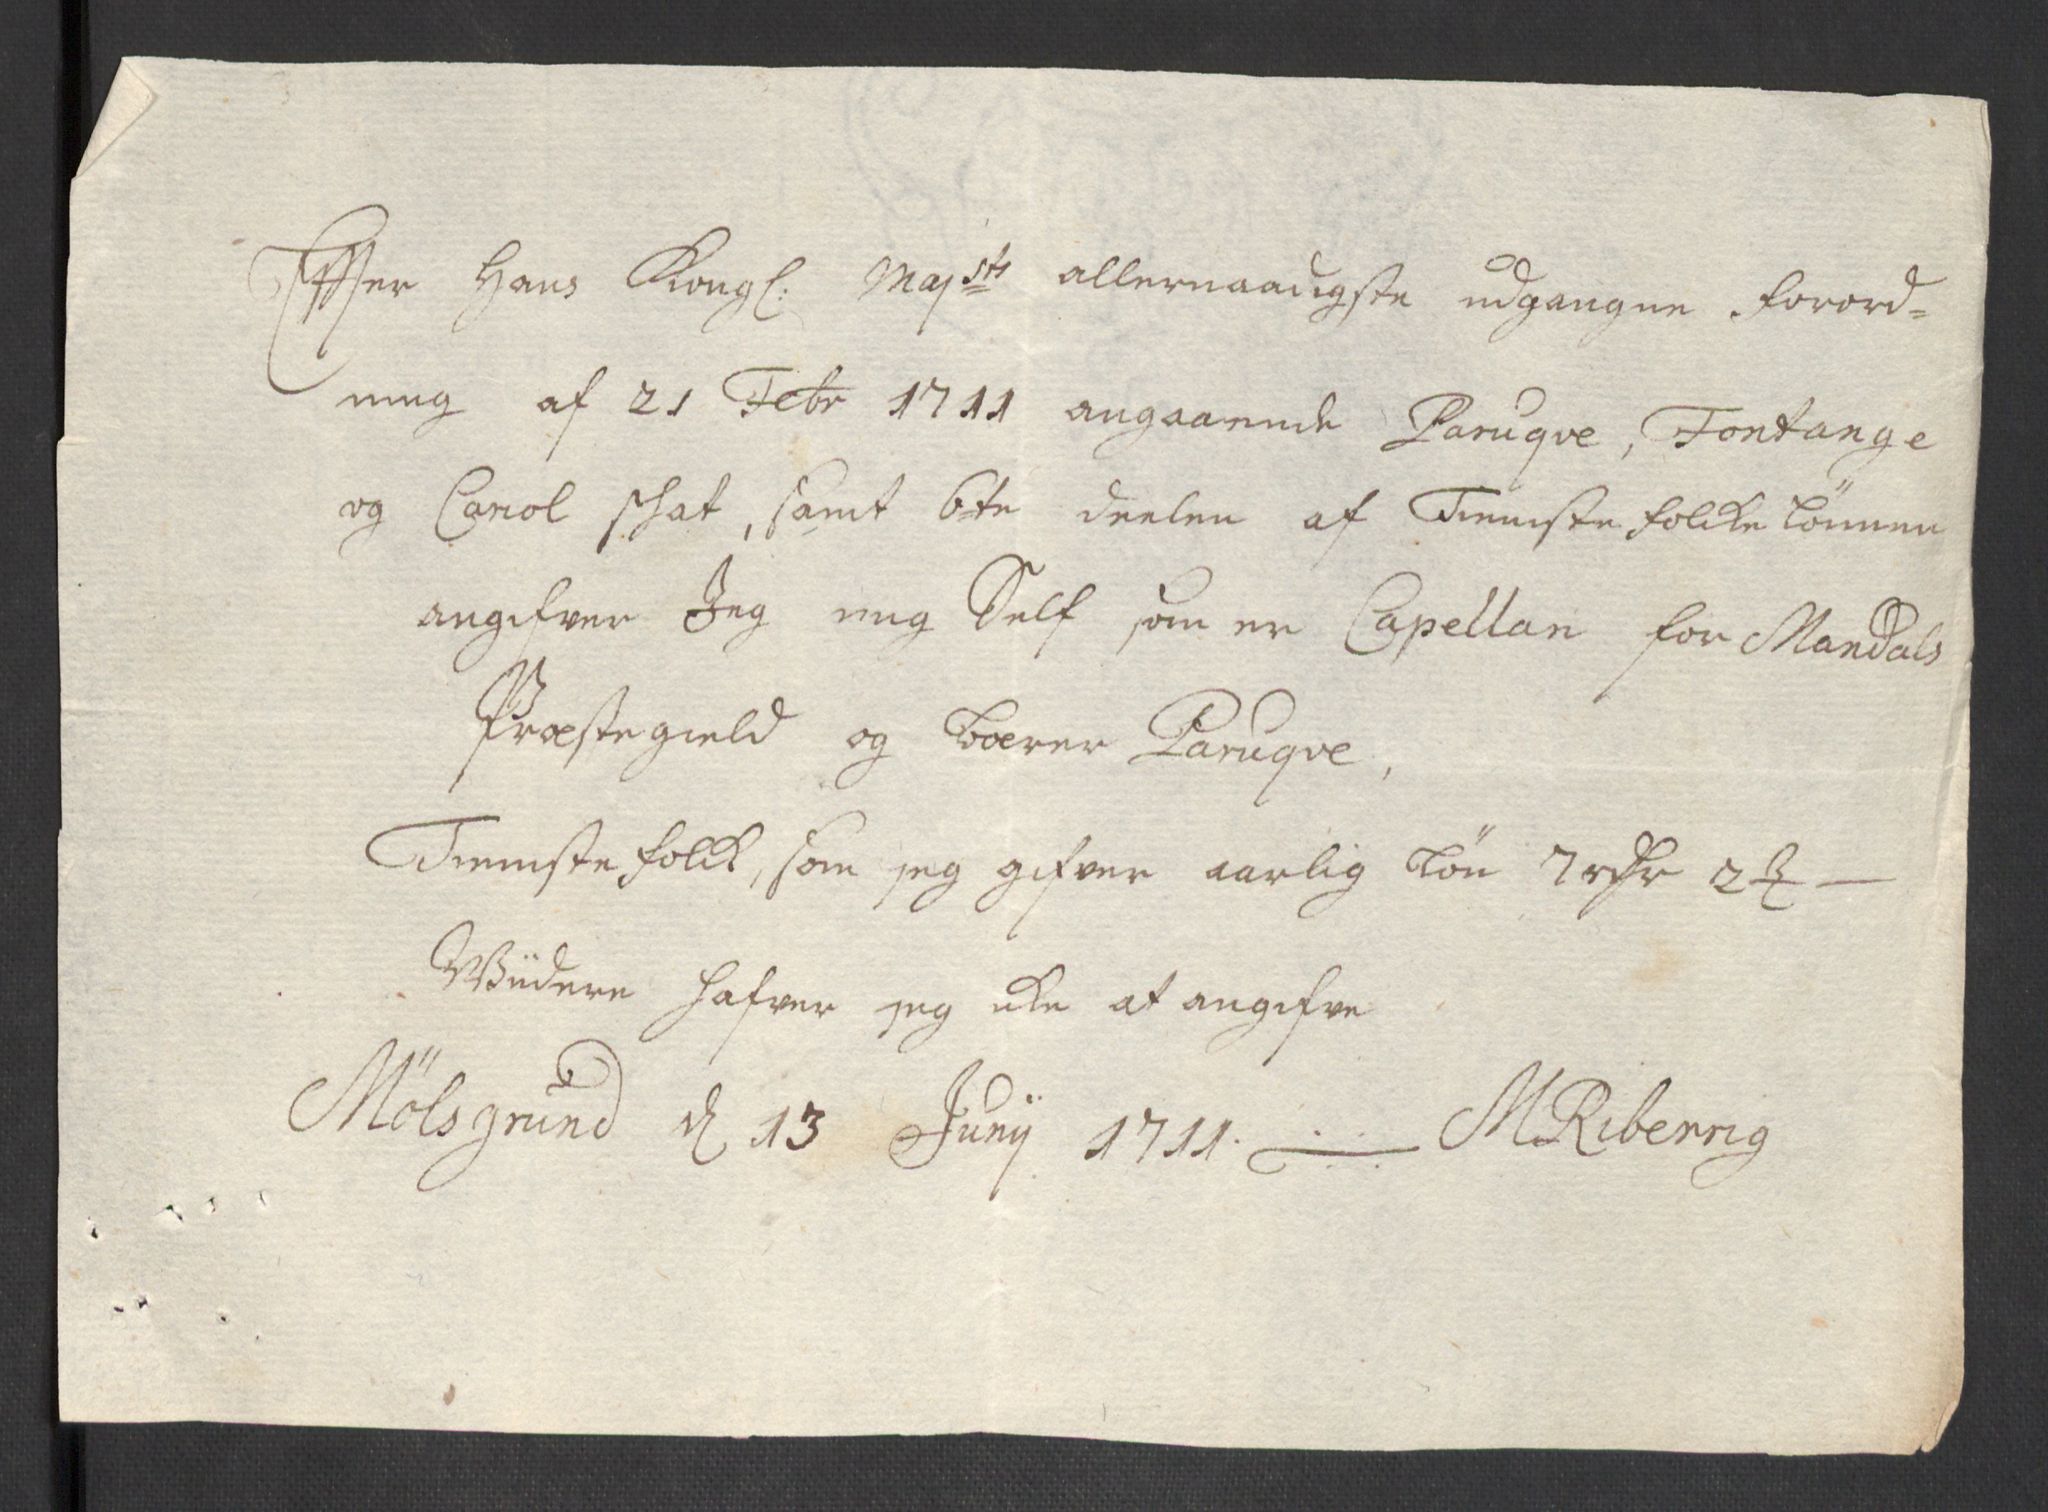 Effter Hans Kongl: Maj<sup>sts</sup> allernaadigste udgangne forord=
ning af 21 Febr 1711 angaaende Paruqve, Fontange
og Cariol schat, samt 6te deelen af Tienniste folckis lönnen
angifver Jeg mig Self som er Capellan for Mandals
Præstegield og bærer Paruqve,
Tienniste folck, som jeg gifver aarlig lön 7 rdr 2 &#8114;—
Wiidere hafver jeg icke at angifve
Mölsgrund d 13 Junij 1711. MRiberrig